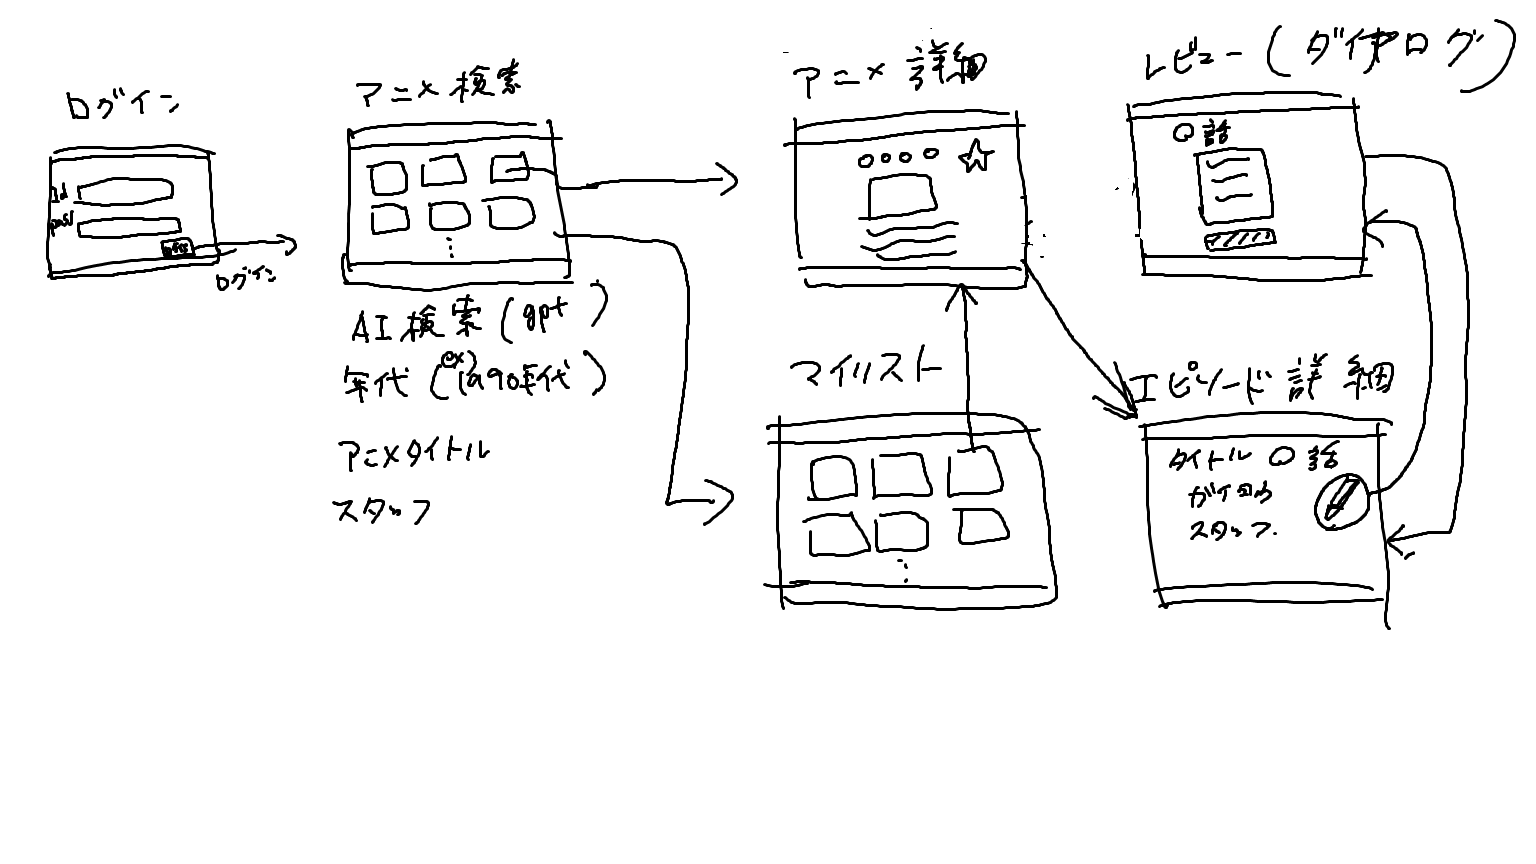 ログイン
Id
pass
ログイン
アニメ検索
AI検索(gpt)
年代(ex)1990年代)
アニメタイトル
スタッフ
アニメ詳細
マイリスト
レビュー(ダイアログ)
〇話
エピソード詳細
タイトル 〇話
スタッフ